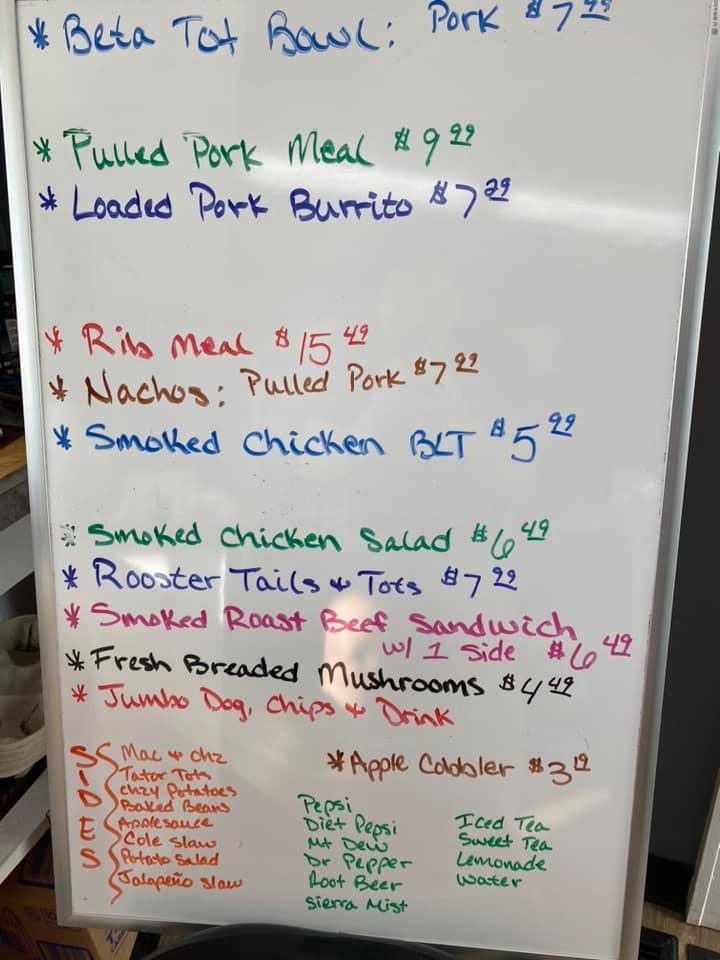 * Beta Tot Bowl: Pork $7.99
* Pulled Pork Meal $9.99
* Loaded Pork Burrito $7.29
* Rib Meal $15.49
* Nachos: Pulled Pork $7.99
* Smoked Chicken BLT $5.99
* Smoked Chicken Salad $6.49
* Rooster Tails & Tots $7.99
* Smoked Roast Beef Sandwich
w/ 1 Side $6.49
* Fresh Breaded Mushrooms $4.49
* Jumbo Dog, Chips & Drink
* Apple Cobbler $3.19
SIDES
Mac & chz
Tator Tots
chzy Potatoes
Baked Beans
Applesauce
Cole slaw
Potato Salad
Jalapeño slaw
Pepsi
Diet Pepsi
Mt Dew
Dr Pepper
Root Beer
Sierra Mist
Iced Tea
Sweet Tea
Lemonade
Water